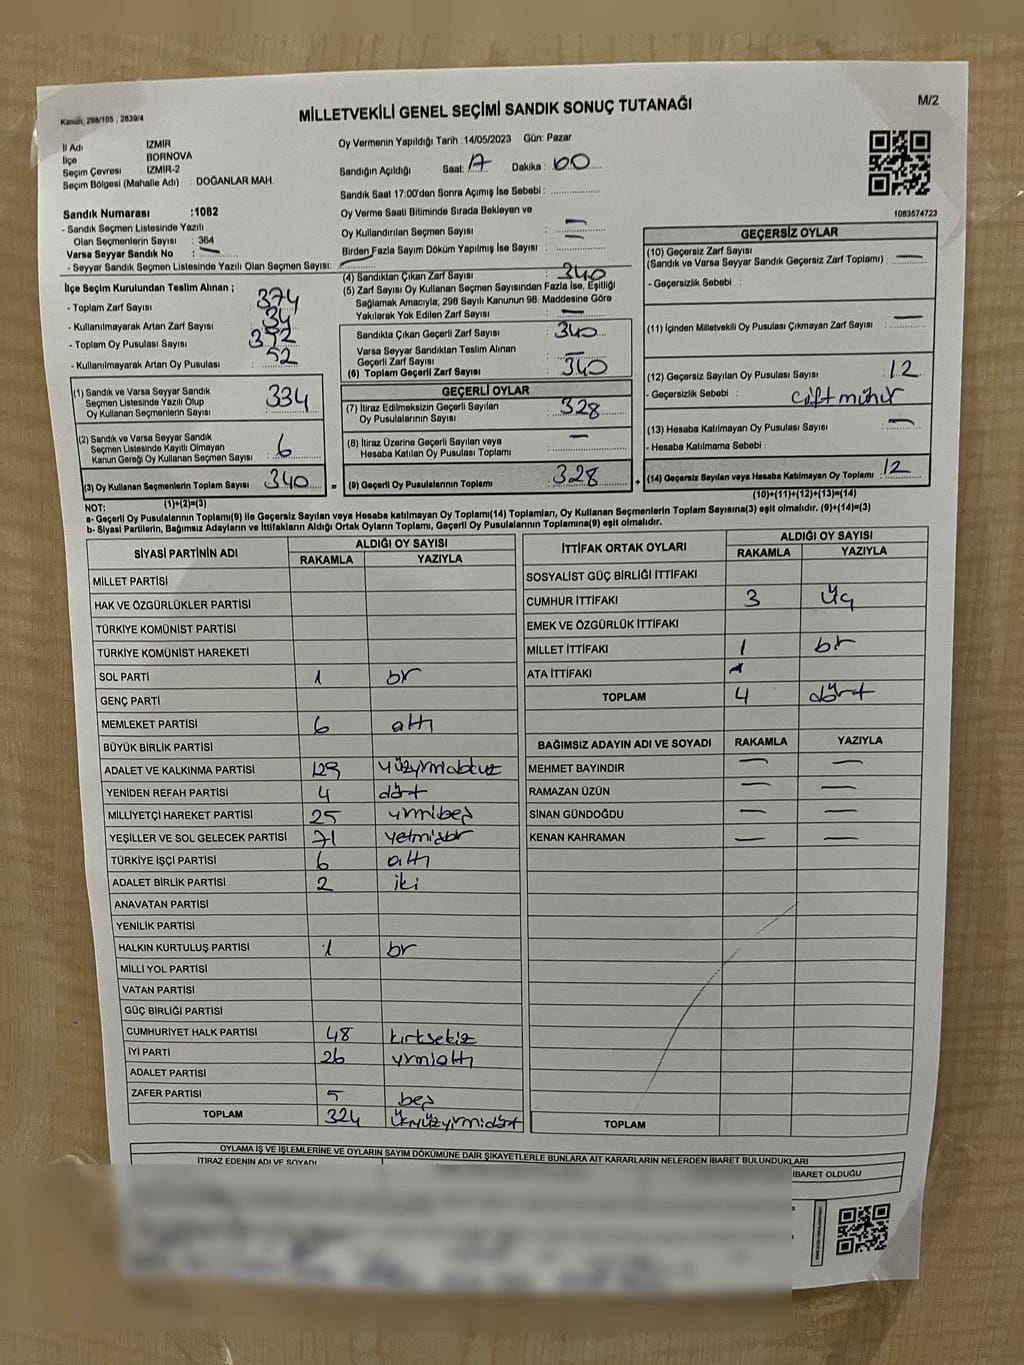 Kanun: 298/105 , 2839/4
MİLLETVEKİLİ GENEL SEÇİMİ SANDIK SONUÇ TUTANAĞI
M/2
İl Adı : İZMİR
İlçe : BORNOVA
Seçim Çevresi : İZMİR-2
Seçim Bölgesi (Mahalle Adı) : DOĞANLAR MAH.
Oy Vermenin Yapıldığı Tarih : 14/05/2023 Gün: Pazar
Sandığın Açıldığı Saat: 17 Dakika : 00
Sandık Saat 17:00'den Sonra Açımış İse Sebebi :
Oy Verme Saati Bitiminde Sırada Bekleyen ve
Oy Kullandırılan Seçmen Sayısı : —
Birden Fazla Sayım Döküm Yapılmış İse Sayısı : —
1083574723
Sandık Numarası :1082
- Sandık Seçmen Listesinde Yazılı
Olan Seçmenlerin Sayısı : 364
Varsa Seyyar Sandık No : —
- Seyyar Sandık Seçmen Listesinde Yazılı Olan Seçmen Sayısı: —
İlçe Seçim Kurulundan Teslim Alınan ;
- Toplam Zarf Sayısı : 374
- Kullanılmayarak Artan Zarf Sayısı : 34
- Toplam Oy Pusulası Sayısı : 392
- Kullanılmayarak Artan Oy Pusulası : 52
(1) Sandık ve Varsa Seyyar Sandık
Seçmen Listesinde Yazılı Olup
Oy Kullanan Seçmenlerin Sayısı : 334
(2) Sandık ve Varsa Seyyar Sandık
Seçmen Listesinde Kayıtlı Olmayan
Kanun Gereği Oy Kullanan Seçmen Sayısı : 6
(3) Oy Kullanan Seçmenlerin Toplam Sayısı : 340
(1)+(2)=(3)
(4) Sandıktan Çıkan Zarf Sayısı : 340
(5) Zarf Sayısı Oy Kullanan Seçmen Sayısından Fazla İse, Eşitliği
Sağlamak Amacıyla; 298 Sayılı Kanunun 98. Maddesine Göre
Yakılarak Yok Edilen Zarf Sayısı : —
Sandıkta Çıkan Geçerli Zarf Sayısı : 340
Varsa Seyyar Sandıktan Teslim Alınan
Geçerli Zarf Sayısı : —
(6) Toplam Geçerli Zarf Sayısı : 340
GEÇERLİ OYLAR
(7) İtiraz Edilmeksizin Geçerli Sayılan
Oy Pusulalarının Sayısı : 328
(8) İtiraz Üzerine Geçerli Sayılan veya
Hesaba Katılan Oy Pusulası Toplamı : —
= (9) Geçerli Oy Pusulalarının Toplamı : 328
GEÇERSİZ OYLAR
(10) Geçersiz Zarf Sayısı
(Sandık ve Varsa Seyyar Sandık Geçersiz Zarf Toplamı) : —
- Geçersizlik Sebebi :
(11) İçinden Milletvekili Oy Pusulası Çıkmayan Zarf Sayısı : —
(12) Geçersiz Sayılan Oy Pusulası Sayısı : 12
- Geçersizlik Sebebi : çift mühür
(13) Hesaba Katılmayan Oy Pusulası Sayısı : —
- Hesaba Katılmama Sebebi :
+ (14) Geçersiz Sayılan veya Hesaba Katılmayan Oy Toplamı : 12
(10)+(11)+(12)+(13)=(14)
NOT:
a- Geçerli Oy Pusulalarının Toplamı(9) ile Geçersiz Sayılan veya hesaba katılmayan Oy Toplamı(14) Toplamları, Oy Kullanan Seçmenlerin Toplam Sayısına(3) eşit olmalıdır. (9)+(14)=(3)
b- Siyasi Partilerin, Bağımsız Adayların ve İttifakların Aldığı Ortak Oyların Toplamı, Geçerli Oy Pusulalarının Toplamına(9) eşit olmalıdır.
SİYASİ PARTİNİN ADI ALDIĞI OY SAYISI
RAKAMLA YAZIYLA
MİLLET PARTİSİ
HAK VE ÖZGÜRLÜKLER PARTİSİ
TÜRKİYE KOMÜNİST PARTİSİ
TÜRKİYE KOMÜNİST HAREKETİ
SOL PARTİ 1 bir
GENÇ PARTİ
MEMLEKET PARTİSİ 6 altı
BÜYÜK BİRLİK PARTİSİ
ADALET VE KALKINMA PARTİSİ 129 yüzyirmidokuz
YENİDEN REFAH PARTİSİ 4 dört
MİLLİYETÇİ HAREKET PARTİSİ 25 yirmibeş
YEŞİLLER VE SOL GELECEK PARTİSİ 71 yetmişbir
TÜRKİYE İŞÇİ PARTİSİ 6 altı
ADALET BİRLİK PARTİSİ 2 iki
ANAVATAN PARTİSİ
YENİLİK PARTİSİ
HALKIN KURTULUŞ PARTİSİ 1 bir
MİLLİ YOL PARTİSİ
VATAN PARTİSİ
GÜÇ BİRLİĞİ PARTİSİ
CUMHURİYET HALK PARTİSİ 48 kırksekiz
İYİ PARTİ 26 yirmialtı
ADALET PARTİSİ
ZAFER PARTİSİ 5 beş
TOPLAM 324 üçyüzyirmidört
İTTİFAK ORTAK OYLARI ALDIĞI OY SAYISI
RAKAMLA YAZIYLA
SOSYALİST GÜÇ BİRLİĞİ İTTİFAKI
CUMHUR İTTİFAKI 3 üç
EMEK VE ÖZGÜRLÜK İTTİFAKI
MİLLET İTTİFAKI 1 bir
ATA İTTİFAKI
TOPLAM 4 dört
BAĞIMSIZ ADAYIN ADI VE SOYADI RAKAMLA YAZIYLA
MEHMET BAYINDIR — —
RAMAZAN ÜZÜN — —
SİNAN GÜNDOĞDU — —
KENAN KAHRAMAN — —
TOPLAM
OYLAMA İŞ VE İŞLEMLERİNE VE OYLARIN SAYIM DÖKÜMÜNE DAİR ŞİKAYETLERLE BUNLARA AİT KARARLARIN NELERDEN İBARET BULUNDUKLARI
İTİRAZ EDENİN ADI VE SOYADI
İBARET OLDUĞU